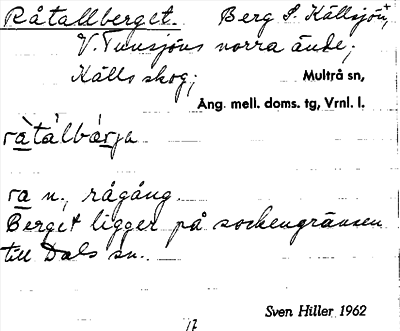 Råtallberget. Berg S. Källsjön,
V. Tunsjöns norra ände;
Källs skog; Multrå sn,
Ång. mell. doms. tg, Vrnl. l.
ràtálbárja
ra n., rågång.
Berget ligger på sockengränsen
till Dals sn.
Sven Hiller 1962